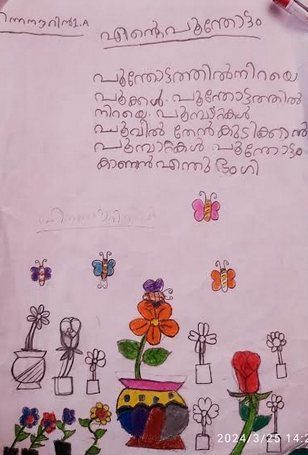 എന്റെപൂന്തോട്ടം
പൂന്തോട്ടത്തിൽനിറയെ
പൂക്കൾ. പൂന്തോട്ടത്തിൽ
നിറയെ. പൂമ്പാറ്റകൾ
പൂവിൽ തേൻകുടിക്കാൻ
പൂമ്പാറ്റകൾ. പൂന്തോട്ടം
കാണാൻഎന്തു ഭംഗി
2024/3/25 14:2